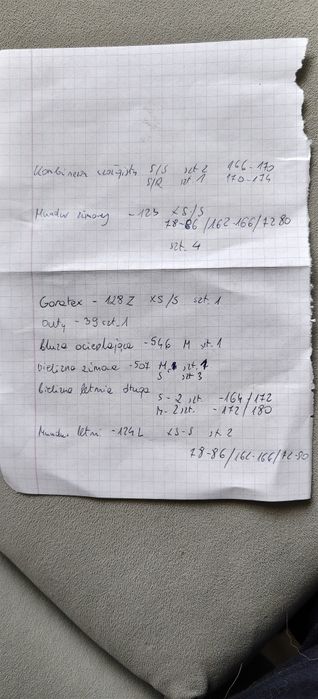 Kombinezon czołgisty S/S szt 2 166-170
S/R szt 1 170-174
Mundur zimowy - 123 XS/S
78-86/162-166/72 80
szt. 4
Goratex - 128 Z XS/S szt. 1
Buty - 39 szt. 1
Bluza ocieplająca - 546 M szt. 1
Bielizna zimowa - 507 M szt. 1
S szt 3
Bielizna letnia długa
S - 2 szt. - 164/172
M - 2 szt. - 172/180
Mundur letni - 124L XS-S szt. 2
78-86/162-166/72-80